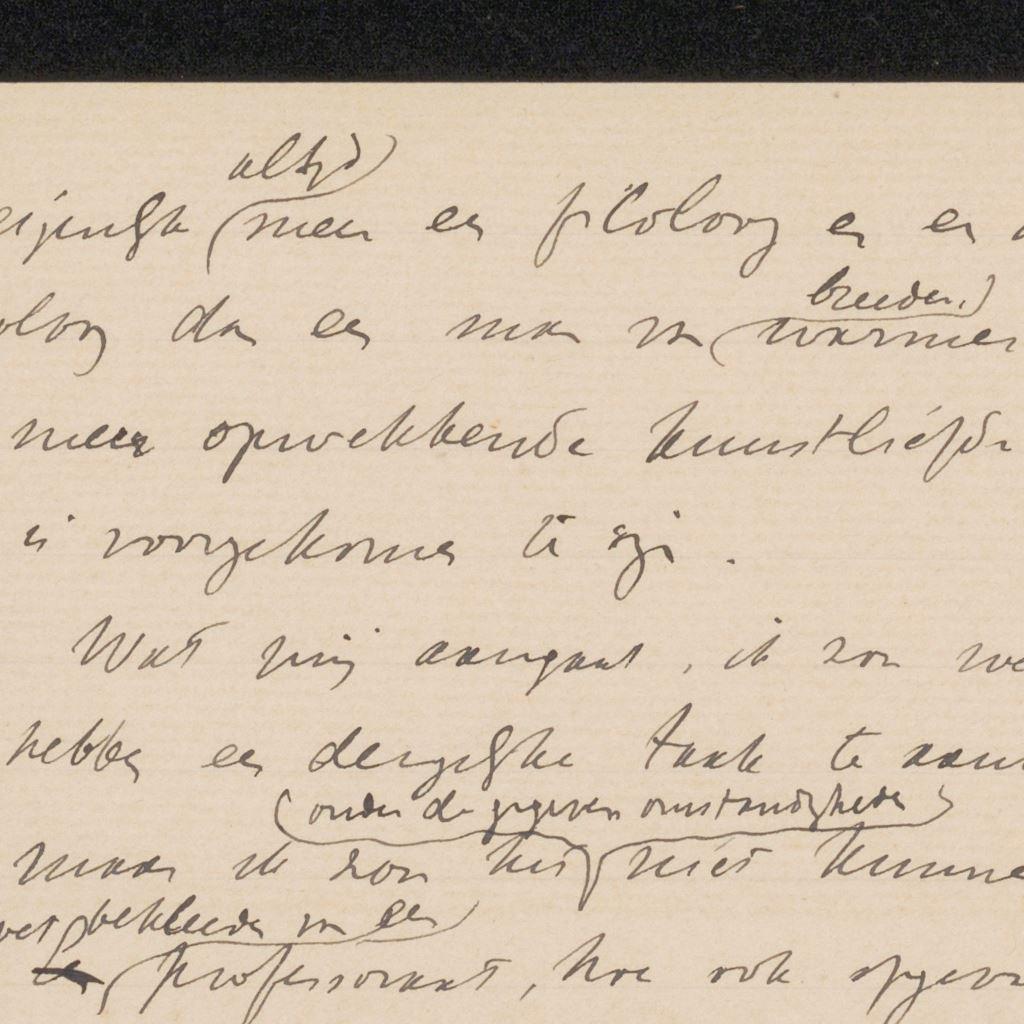 altijd
meer een filoloog en en
oloog dan een man van warmer
breeder,
meer opwekkende kunstliefde
is voorgekomen te zijn.
Wat mij aangaat, ik zou we
hebben een dergelijke taak te aan
onder de gegeven omstandigheden
maar ik zou het niet kunne
bekleeden van een
professoraat, hoe ook opgeva